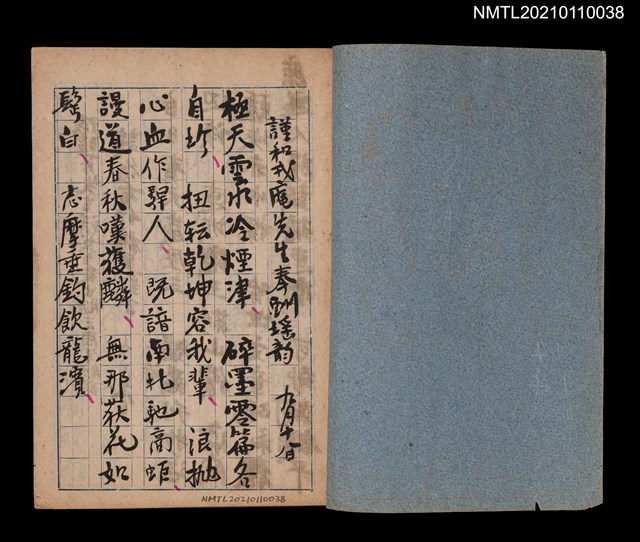 NMTL20210110038
謹和戎庵先生奉酬瑤韵 九月十一日
極天雲水冷煙津、碎墨零篇各
自珍、扭転乾坤容我輩、浪抛
心血作驛人、既諳南北馳高
謾道春秋嘆獲麟、無那荻花如
鬓白、志摩垂釣飲龍濱、
NMTL20210110038